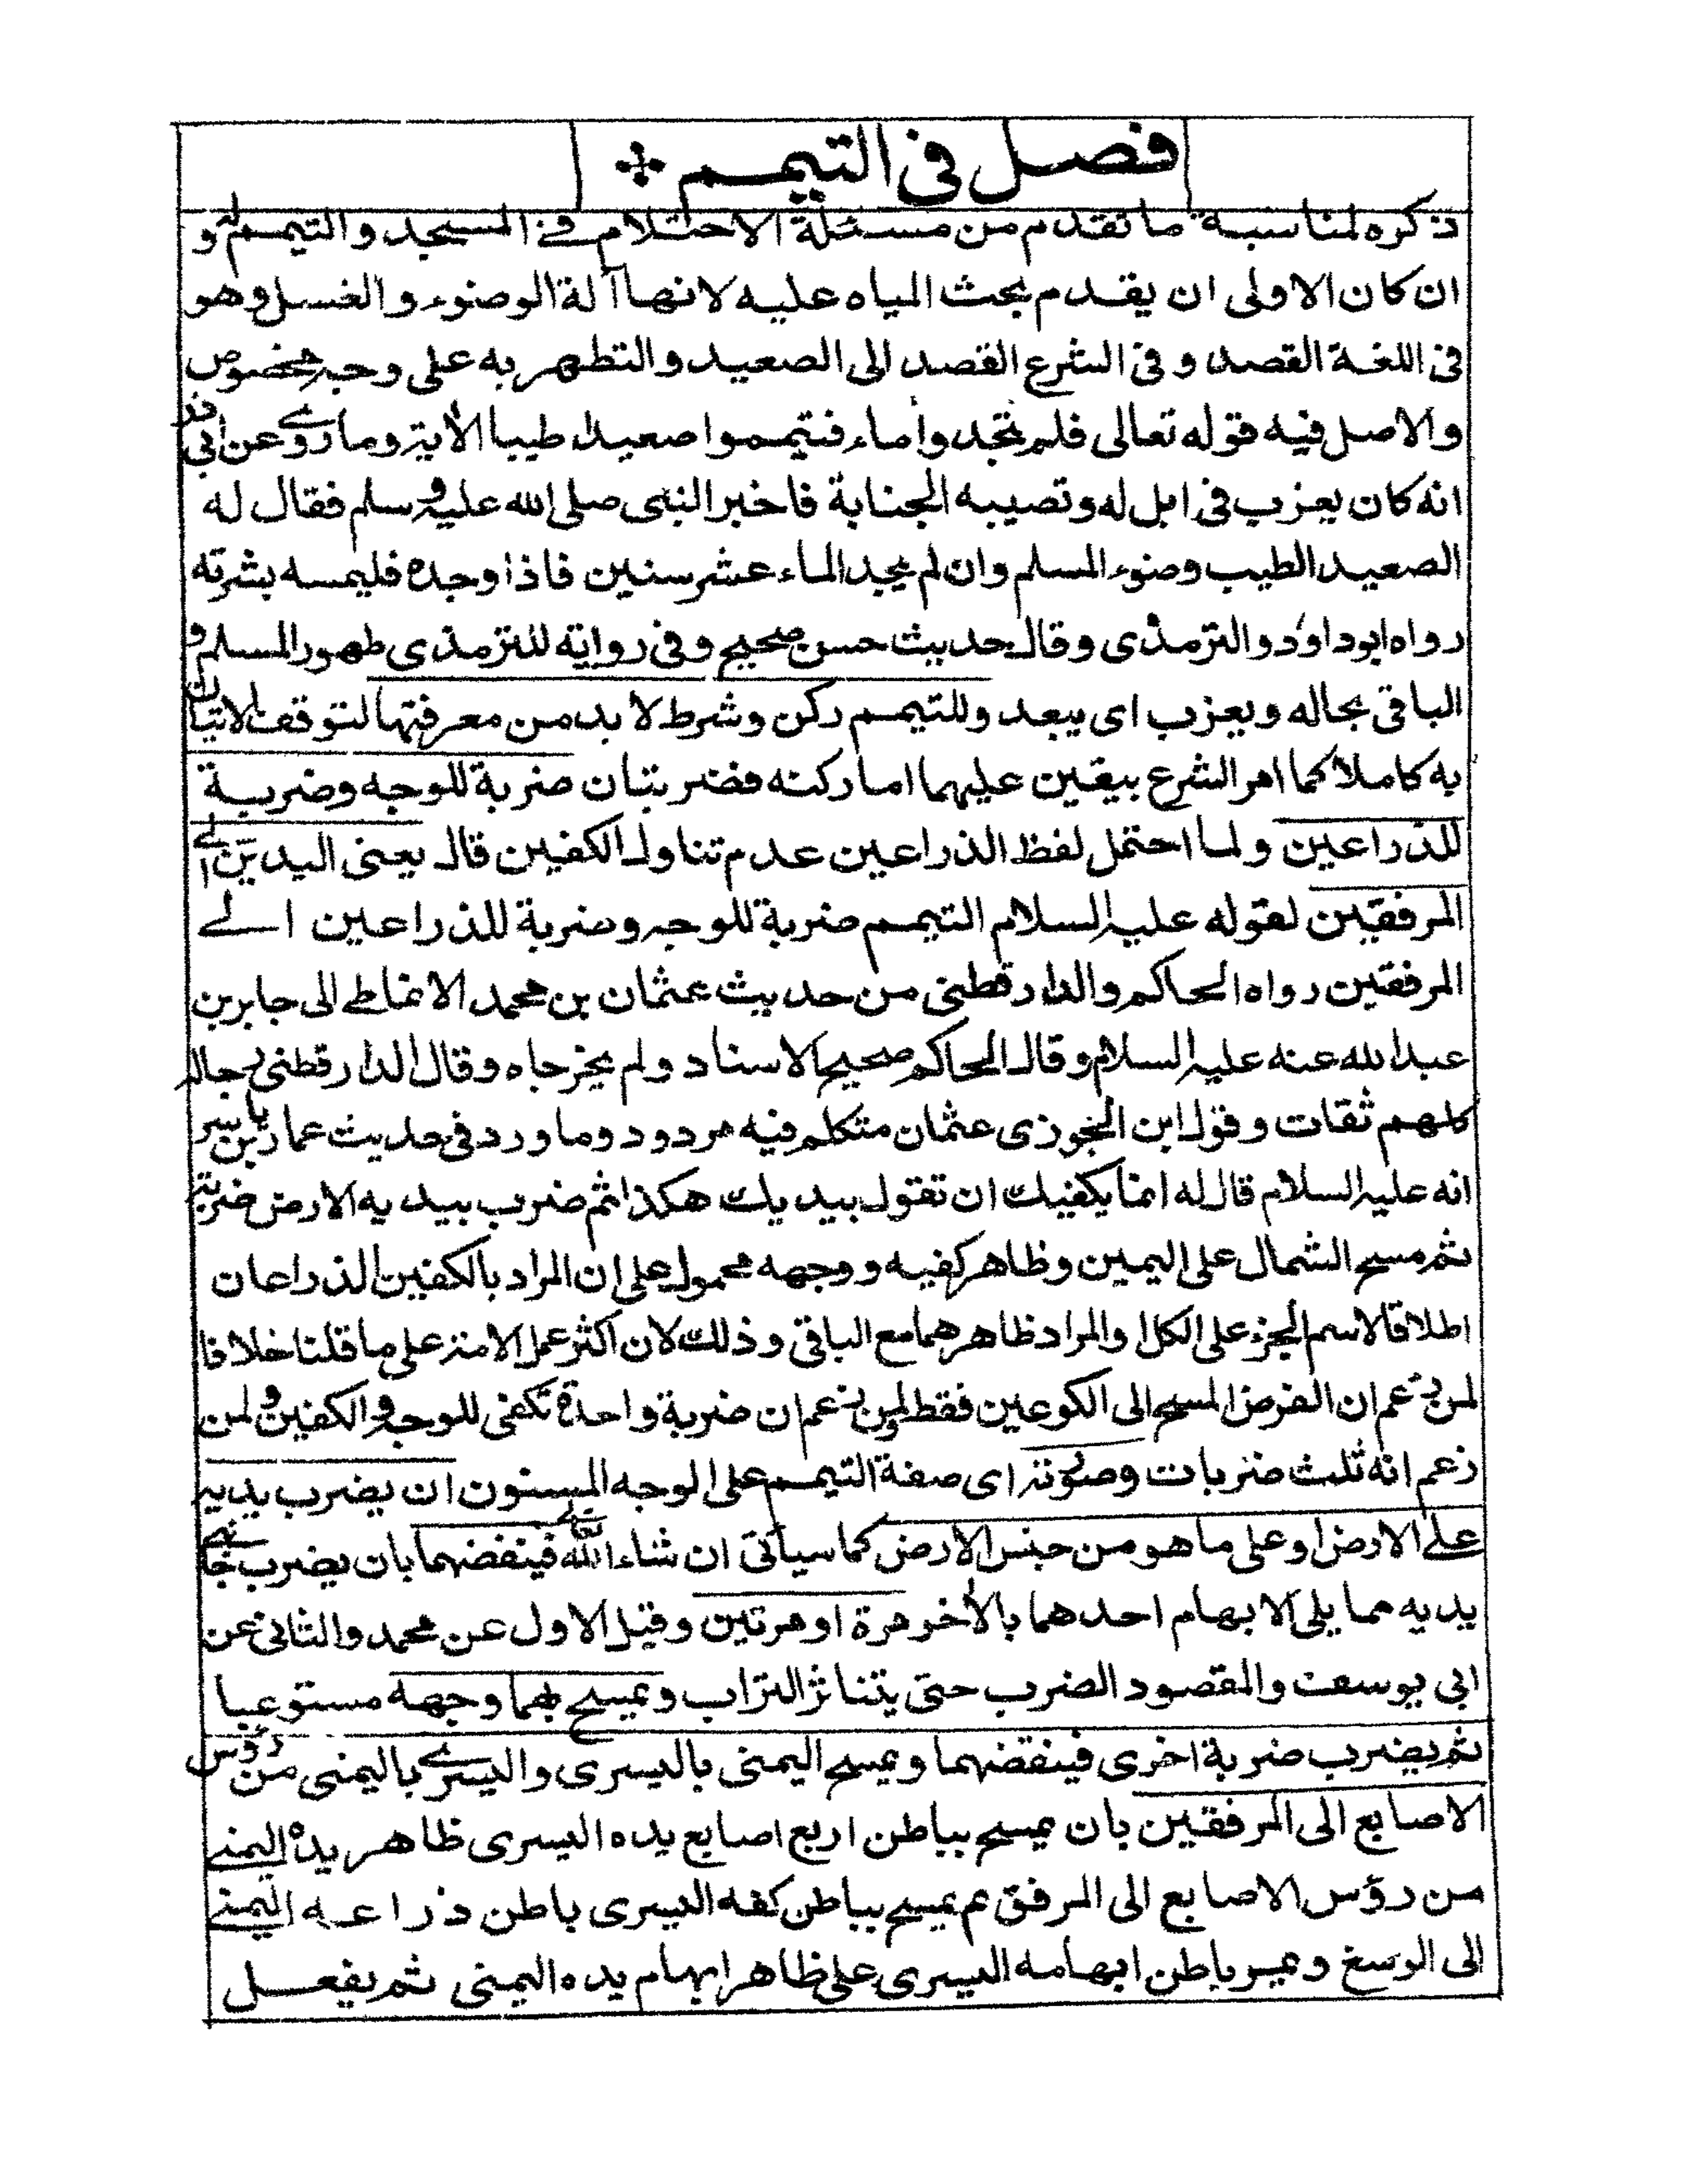 فصل فى التيمم
ذكره لمناسبة ما تقدم من مسئلة الاحتلام فى المسجد والتيمم له و
ان كان الاولى ان يقدم بحث المياه عليه لانها آلة الوضوء والغسل وهو
فى اللغة القصد وفى الشرع القصد الى الصعيد والتطهر به على وجه مخصوص
والاصل فيه قوله تعالى فلم تجدوا ماء فتيمموا صعيدا طيبا الآية وما روى عن ابى ذر
انه كان يعزب فى ابل له وتصيبه الجنابة فاخبر النبى صلى الله عليه وسلم فقال له
الصعيد الطيب وضوء المسلم وان لم يجد الماء عشر سنين فاذا وجده فليمسه بشرته
رواه ابو داود والترمذى وقال حديث حسن صحيح وفى رواية للترمذى طهور المسلم و
الباقى بحاله ويعزب اى يبعد وللتيمم ركن وشرط لا بد من معرفتها لتوقف الاتيان
به كاملا كما امر الشرع بيقين عليهما اما ركنه فضربتان ضربة للوجه وضربة
للذراعين ولما احتمل لفظ الذراعين عدم تناول الكفين قال يعنى اليدين الى
المرفقين لقوله عليه السلام التيمم ضربة للوجه وضربة للذراعين الى
المرفقين رواه الحاكم والدارقطنى من حديث عثمان بن محمد الانماطى الى جابر بن
عبد الله عنه عليه السلام وقال الحاكم صحيح الاسناد ولم يخرجاه وقال الدارقطنى رجاله
كلهم ثقات وقول ابن الجوزى عثمان متكلم فيه مردود وما ورد فى حديث عمار بن ياسر
انه عليه السلام قال له انما يكفيك ان تقول بيديك هكذا ثم ضرب بيديه الارض ضربة
ثم مسح الشمال على اليمين وظاهر كفيه ووجهه محمول على ان المراد بالكفين الذراعان
اطلاقا لاسم الجزء على الكل او المراد ظاهرهما مع الباقى وذلك لان اكثر عمل الامة على ما قلنا خلافا
لمن زعم ان الفرض المسح الى الكوعين فقط ولمن زعم ان ضربة واحدة تكفى للوجه والكفين ولمن
زعم انه ثلث ضربات وصورته اى صفة التيمم على الوجه المسنون ان يضرب يديه
على الارض او على ما هو من جنس الارض كما سيأتى ان شاء الله تعالى فينفضهما بان يضرب جانبى
يديه مما يلى الابهام احدهما بالآخر مرة او مرتين وقيل الاول عن محمد والثانى عن
ابى يوسف والمقصود الضرب حتى يتناثر التراب ويمسح بهما وجهه مستوعبا
ثم يضرب ضربة اخرى فينفضهما ويمسح اليمنى باليسرى واليسرى باليمنى من رؤس
الاصابع الى المرفقين بان يمسح بباطن اربع اصابع يده اليسرى ظاهر يده اليمنى
من رؤس الاصابع الى المرفق ثم يمسح بباطن كفه اليسرى باطن ذراعه اليمنى
الى الرسغ ويمر باطن ابهامه اليسرى على ظاهر ابهام يده اليمنى ثم يفعل